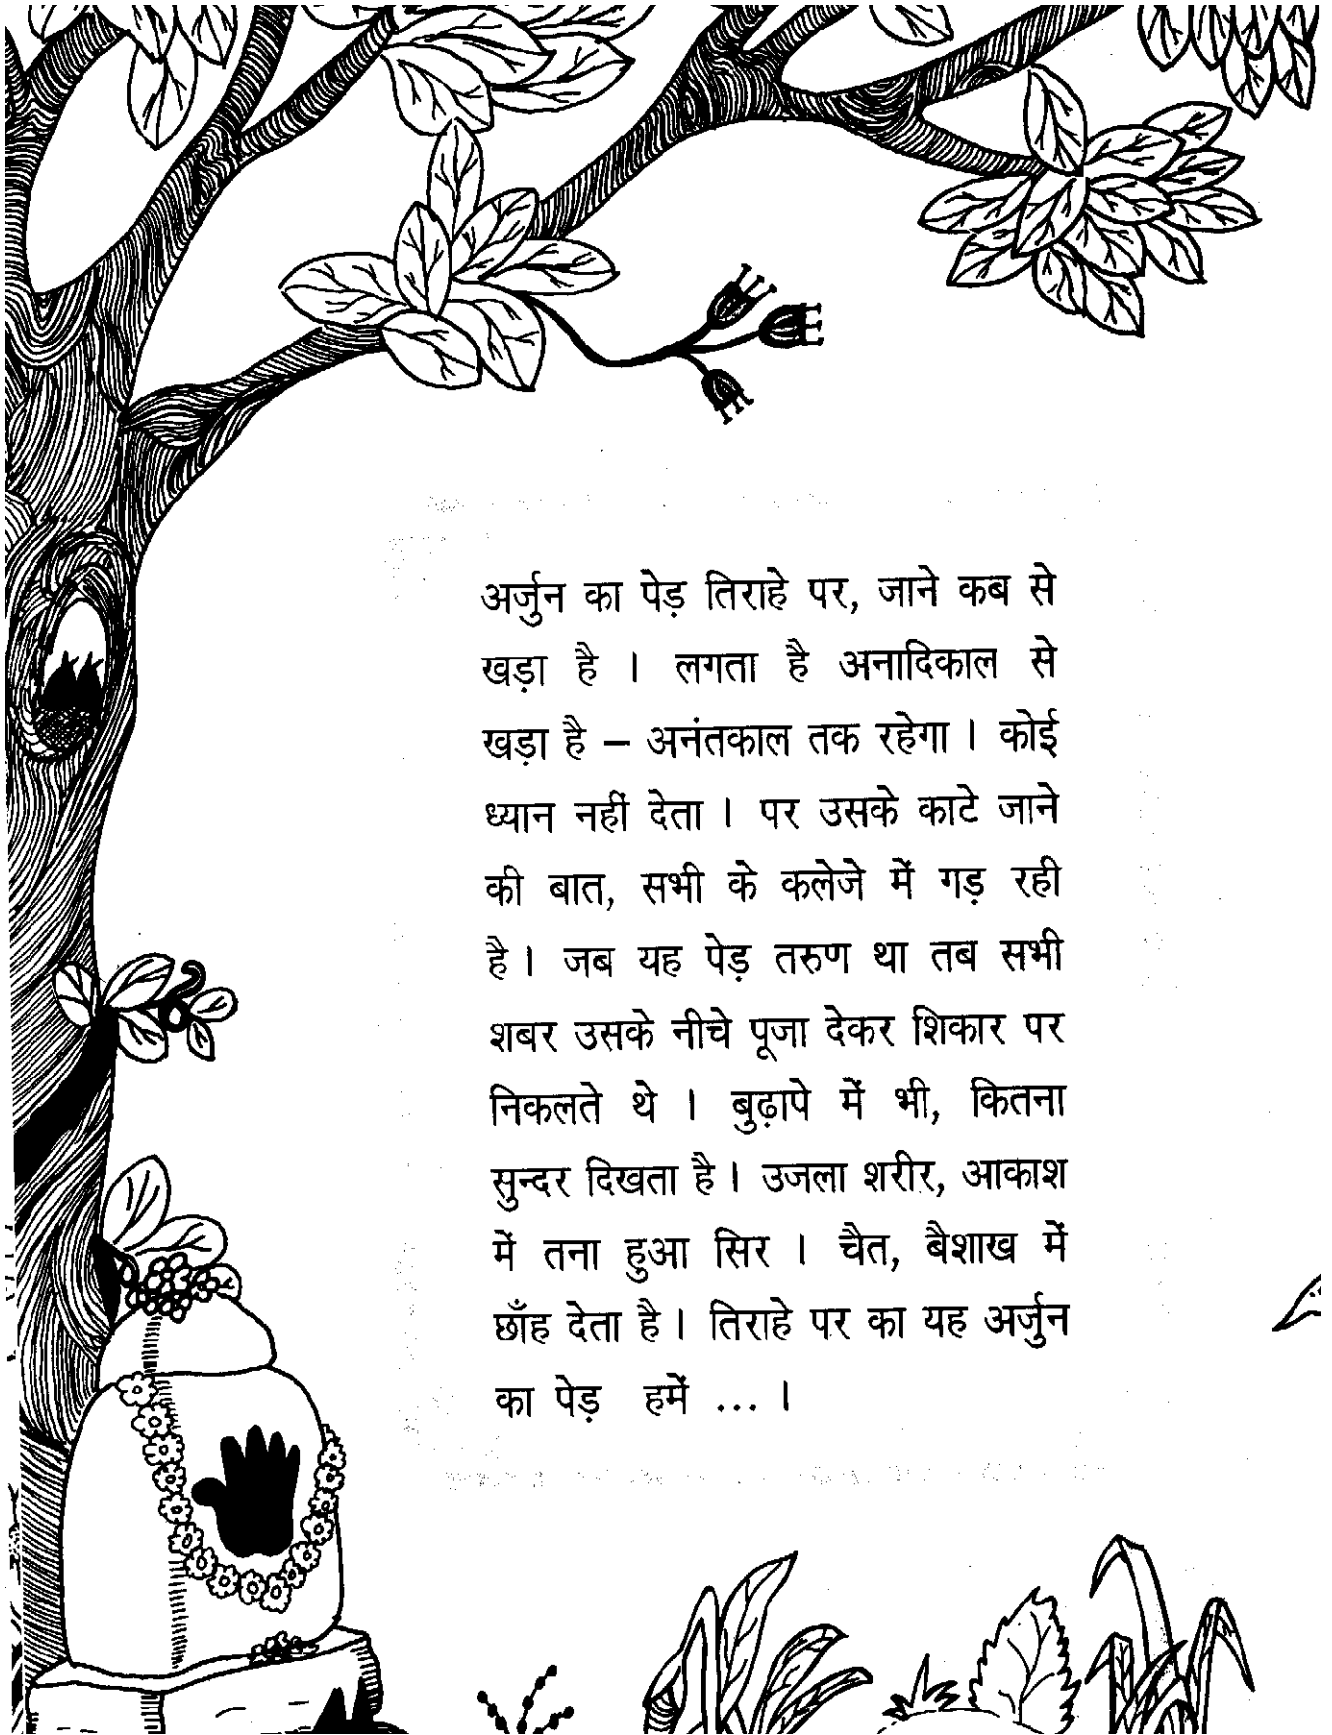 अर्जुन का पेड़ तिराहे पर, जाने कब से
खड़ा है । लगता है अनादिकाल से
खड़ा है – अनंतकाल तक रहेगा । कोई
ध्यान नहीं देता । पर उसके काटे जाने
की बात, सभी के कलेजे में गड़ रही
है । जब यह पेड़ तरुण था तब सभी
शबर उसके नीचे पूजा देकर शिकार पर
निकलते थे । बुढ़ापे में भी, कितना
सुन्दर दिखता है । उजला शरीर, आकाश
में तना हुआ सिर । चैत, बैशाख में
छाँह देता है । तिराहे पर का यह अर्जुन
का पेड़ हमें ... ।